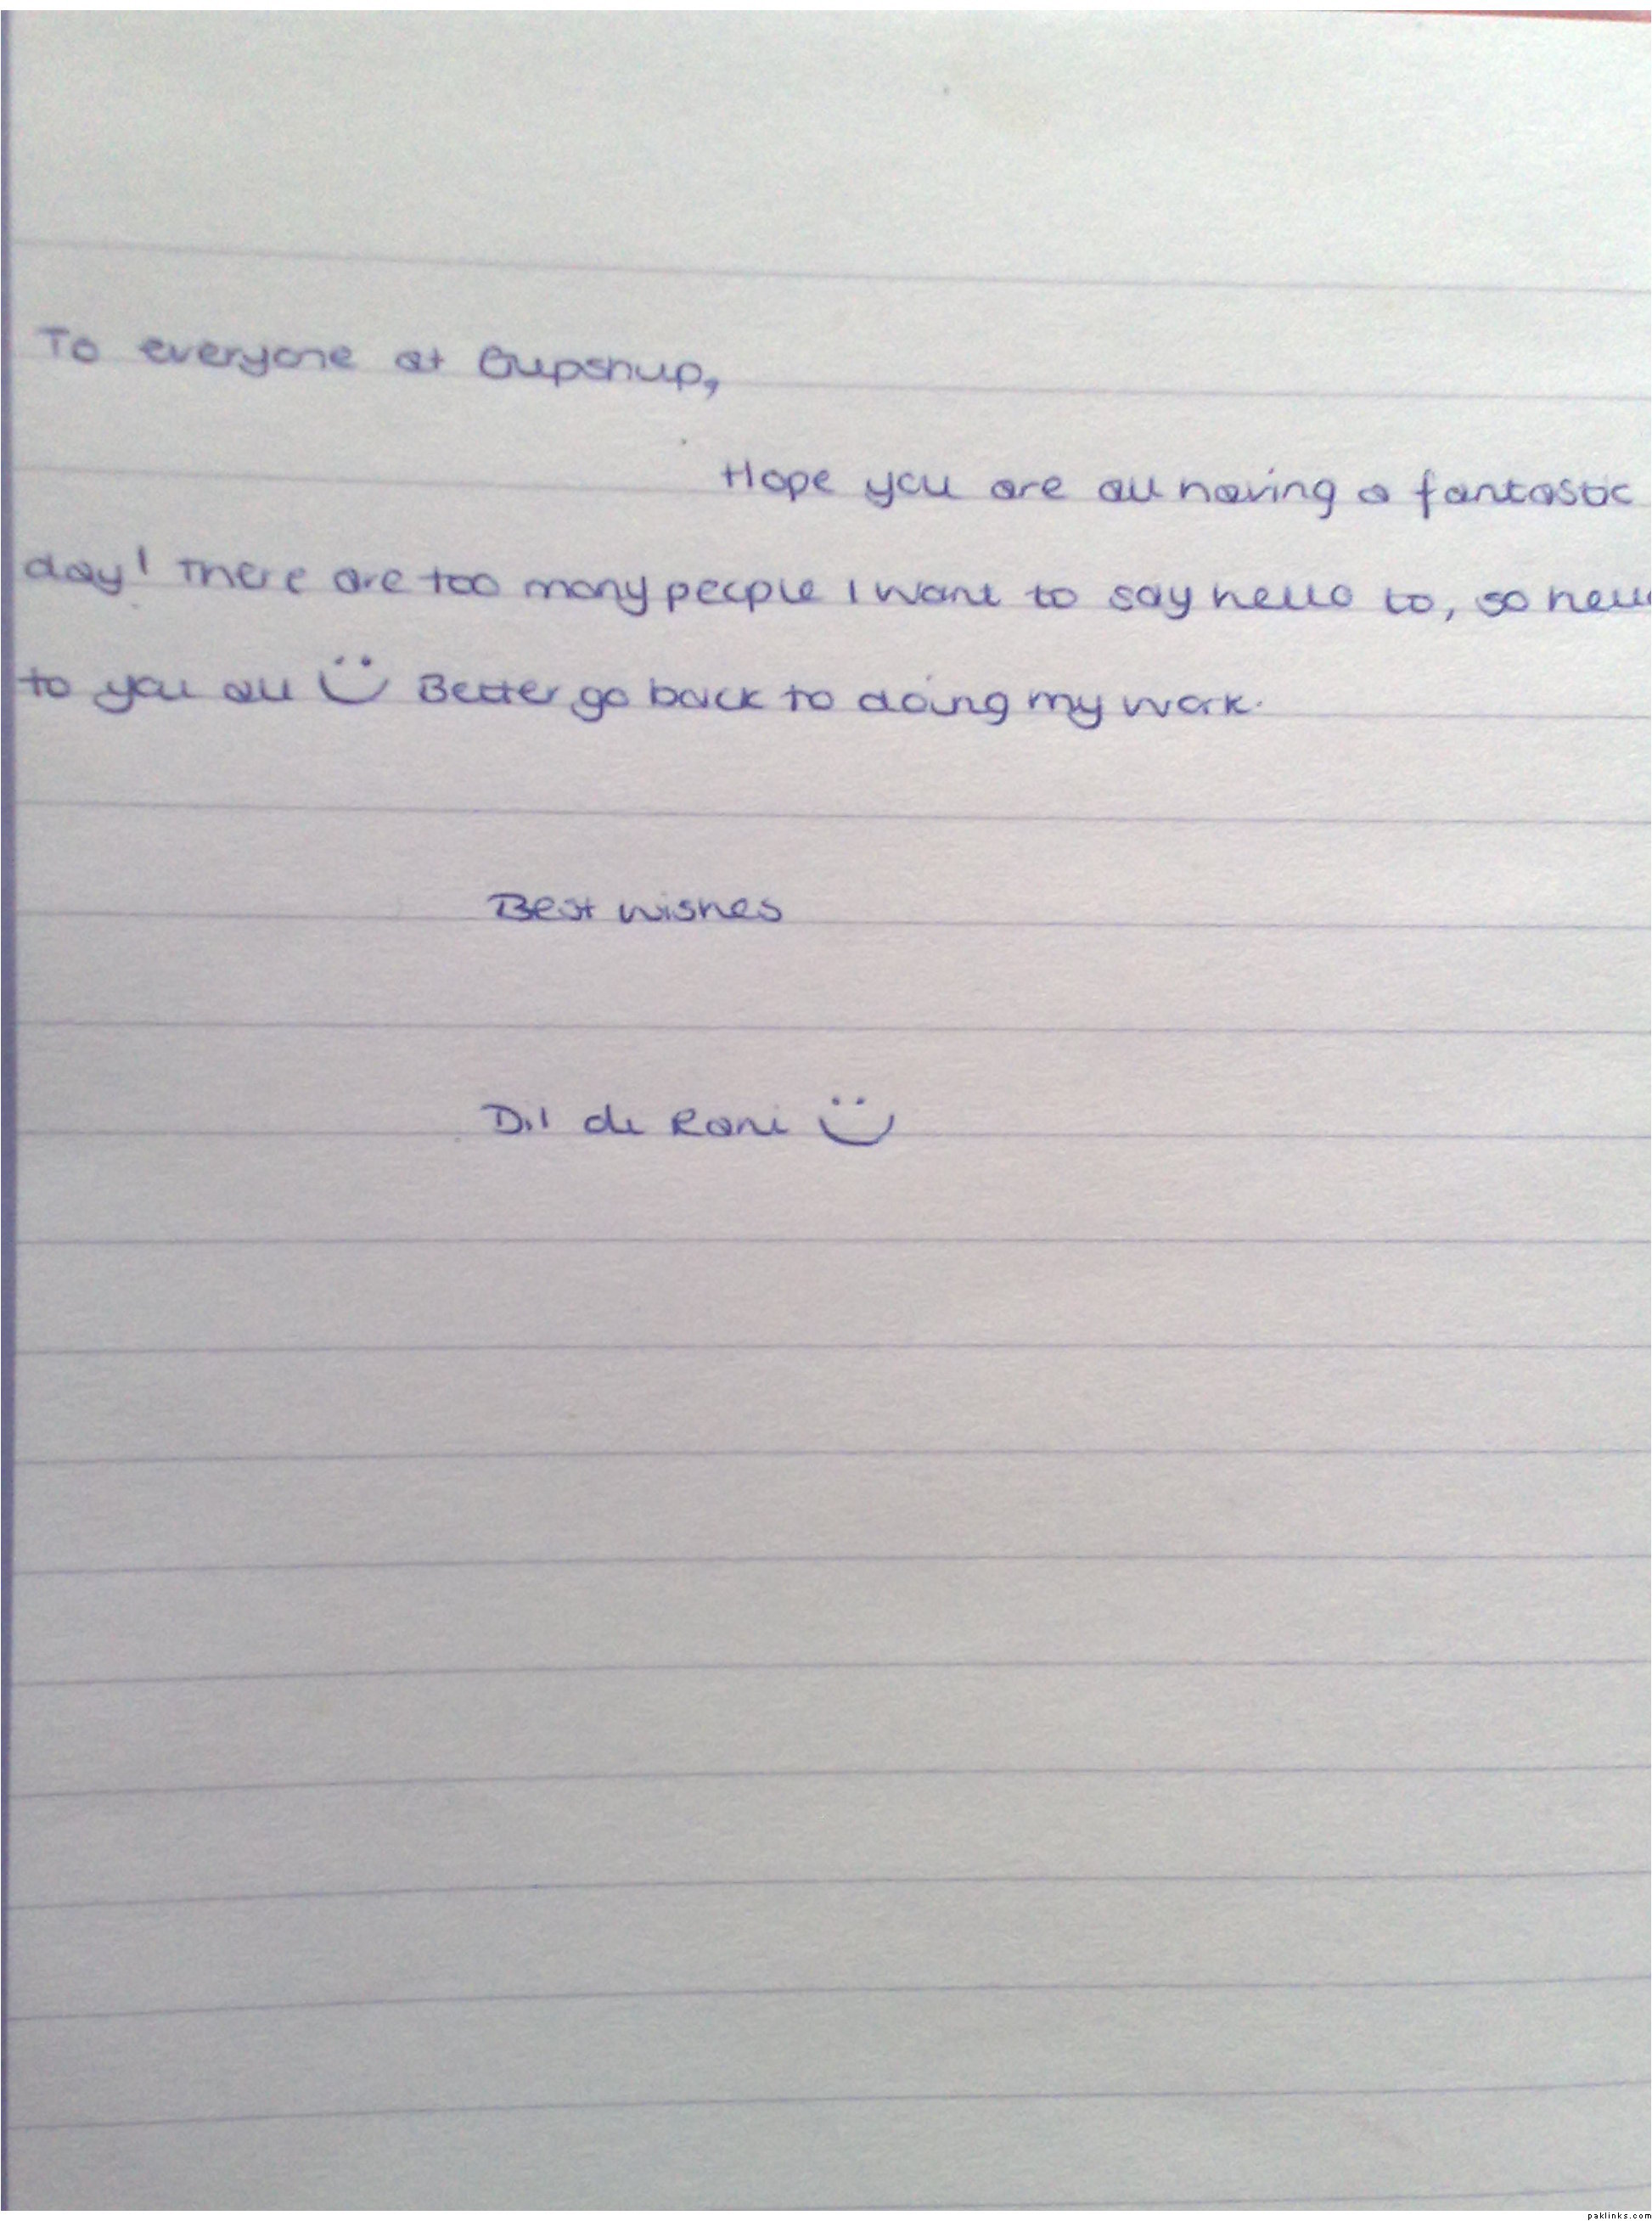 To everyone at Gupshup,
Hope you are all having a fantastic
day! There are too many people I want to say hello to, so hello
to you all Ü Better go back to doing my work.
Best wishes
Dil di Rani Ü
paklinks.com